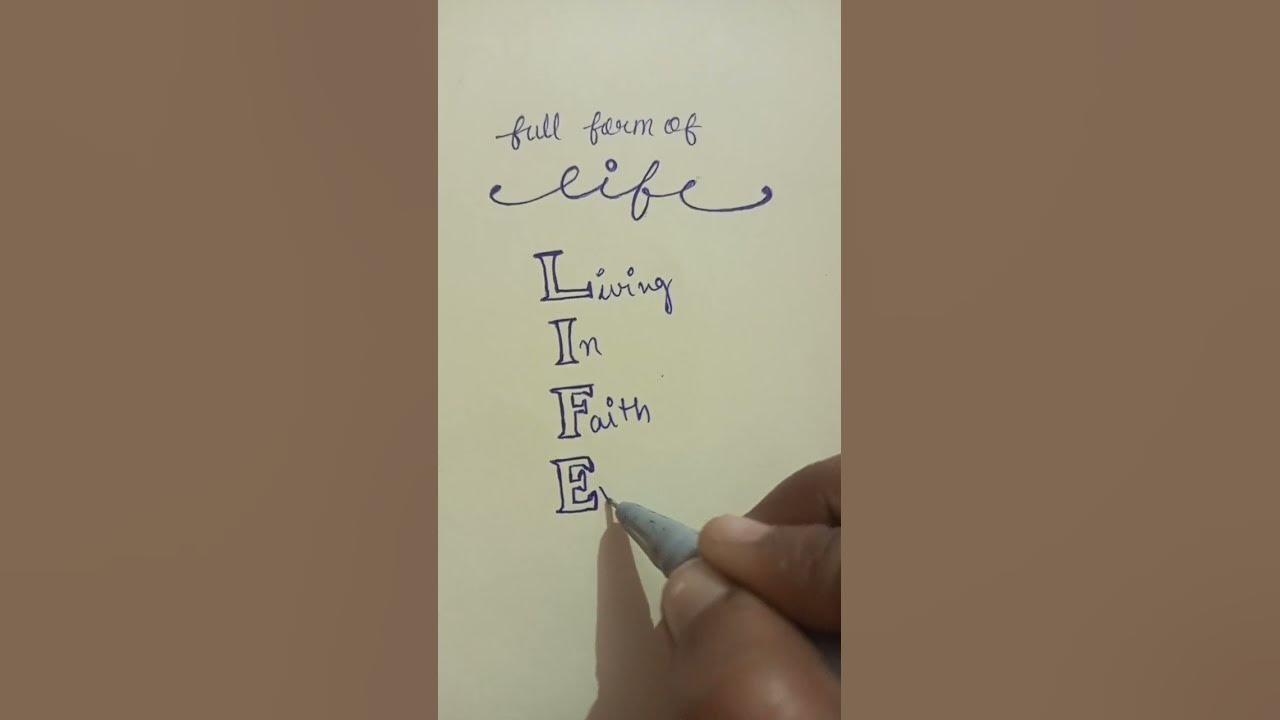 full form of
life
Living
In
Faith
E